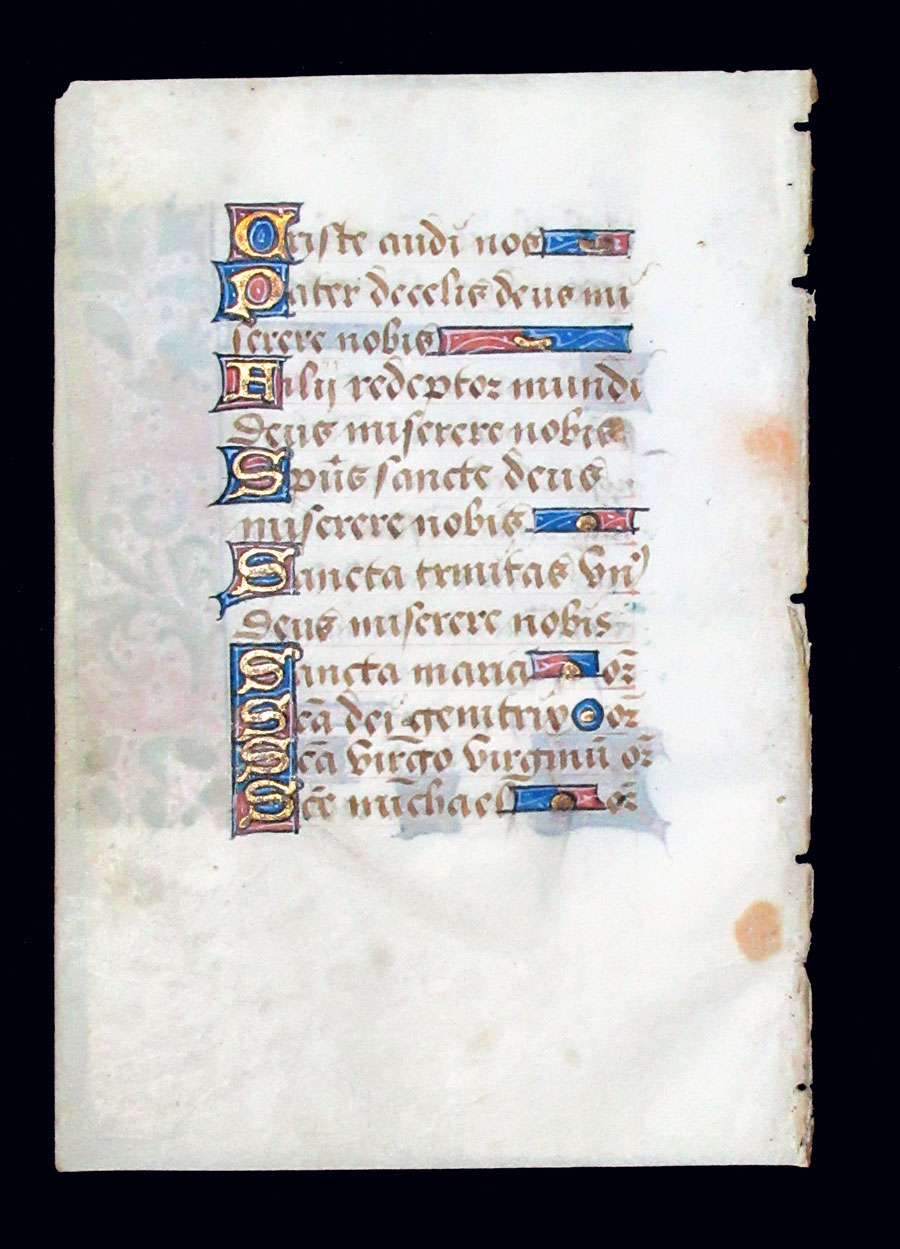 Criste audi nos
Pater de celis deus mi
serere nobis
Filij redẽptor mundi
deus miserere nobis
Spũs sancte deus
miserere nobis
Sancta trinitas vnꝰ
deus miserere nobis
Sancta maria or̃
Scã dei genitrix or̃
Scã virgo virginũ or̃
Scẽ michael or̃